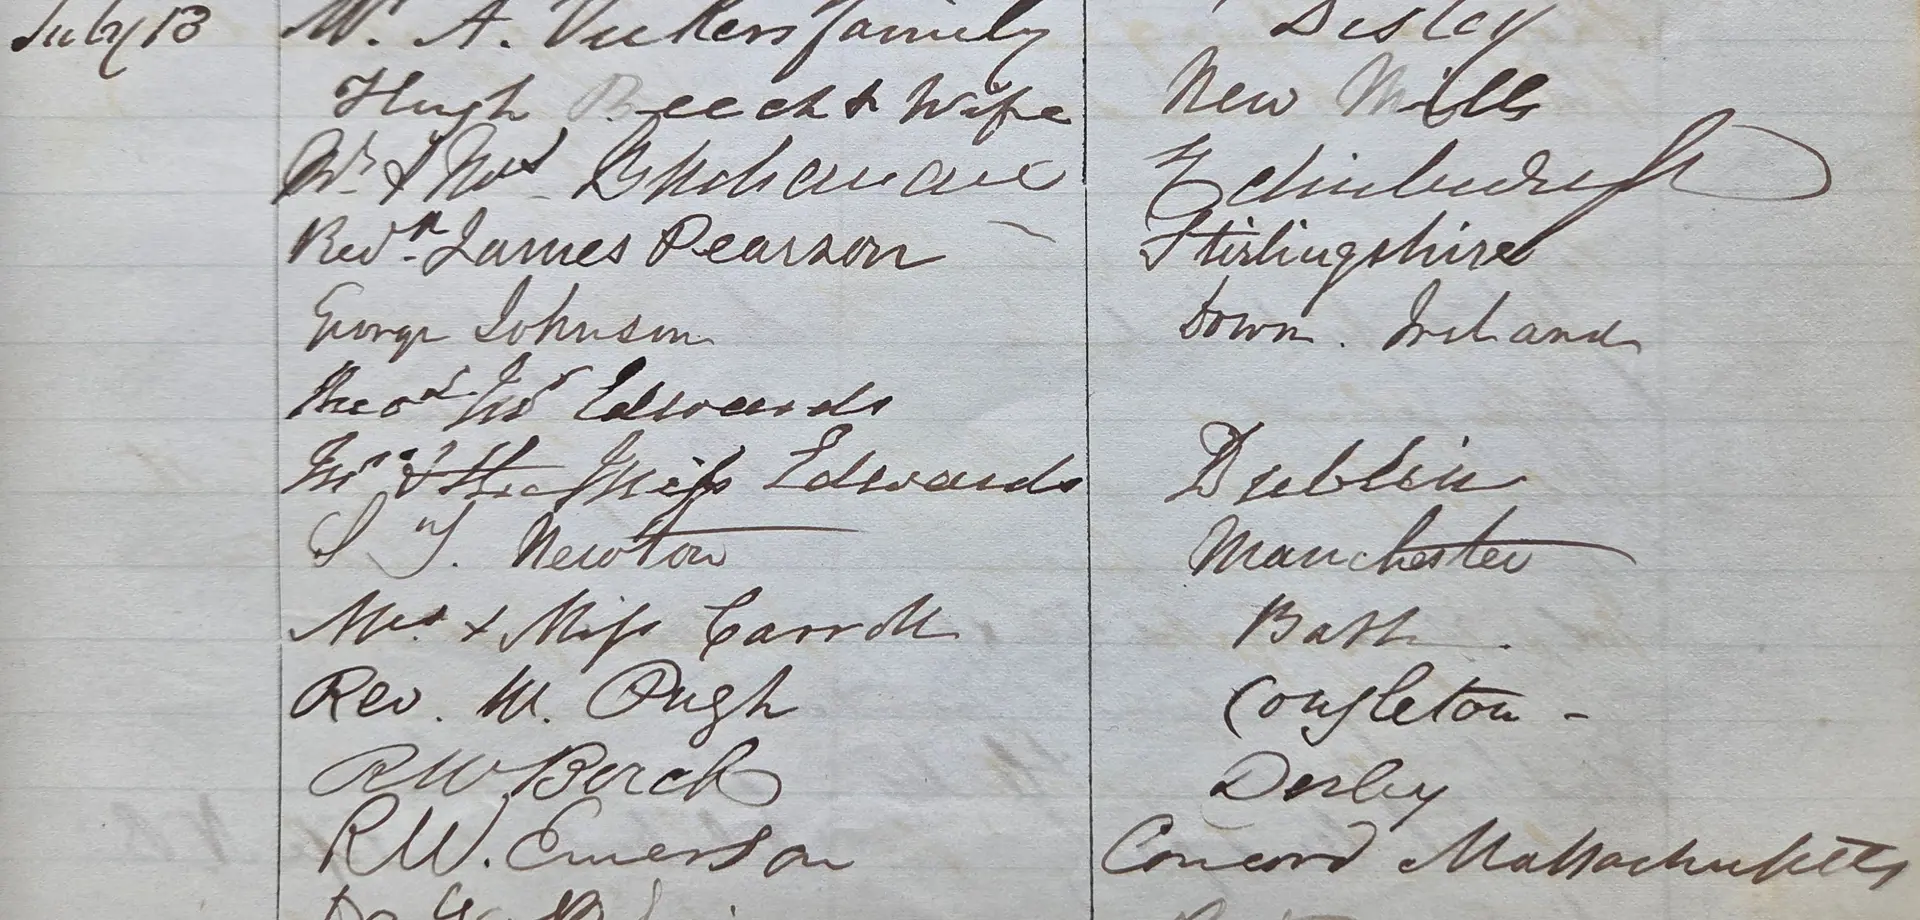 July 13 Mr. A. Vickers family Disley
Hugh Beech & Wife New Mills
Mr & Mrs Buchanan Edinburgh
Revd. James Pearson Stirlingshire
George Johnson Down. Ireland
Revd Edwards
Miss Edwards Dublin
Newton Manchester
Mrs. & Miss Carroll Bath.
Rev. W. Pugh Congleton -
RW Birch Derby
R.W. Emerson Concord Massachusetts